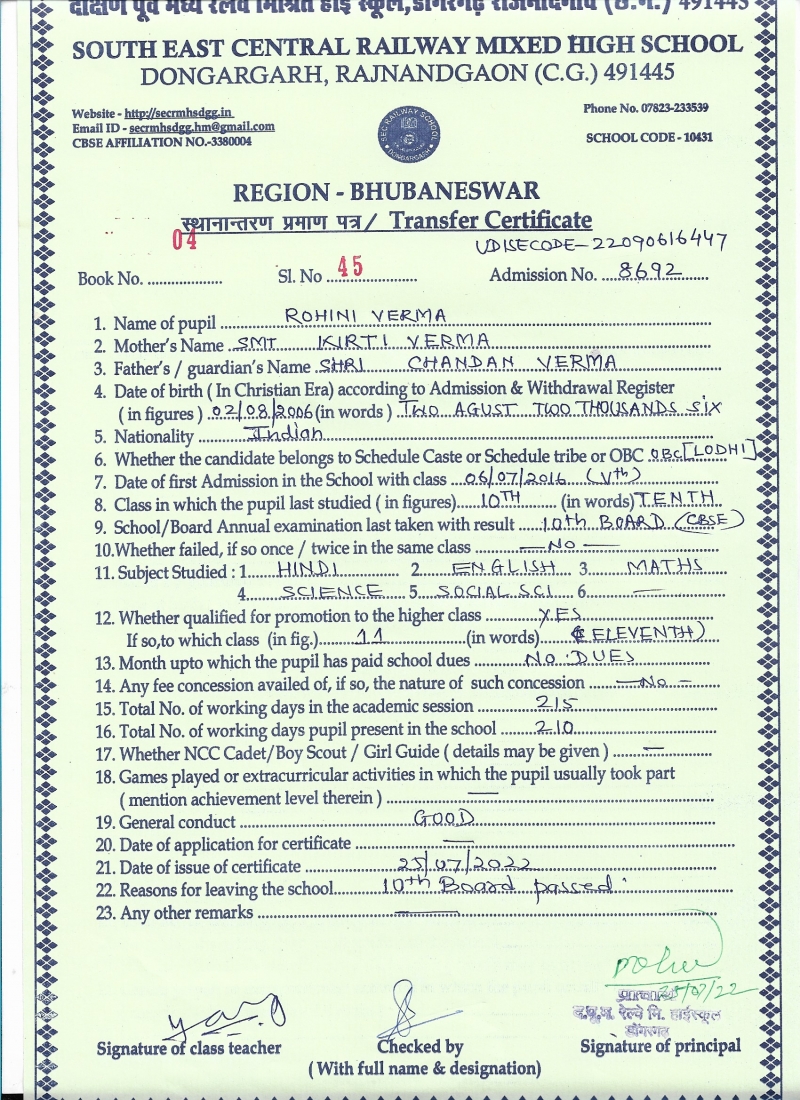 दक्षिण पूर्व मध्य रेलवे मिश्रित हाई स्कूल,डोंगरगढ़ राजनांदगांव (छ.ग.) 491445
SOUTH EAST CENTRAL RAILWAY MIXED HIGH SCHOOL
DONGARGARH, RAJNANDGAON (C.G.) 491445
Website - http://secrmhsdgg.in
Phone No. 07823-233539
Email ID - secrmhsdgg.hm@gmail.com
CBSE AFFILIATION NO.-3380004
SCHOOL CODE - 10431
SEC RAILWAY SCHOOL DONGARGARH
REGION - BHUBANESWAR
स्थानान्तरण प्रमाण पत्र / Transfer Certificate
UDISECODE-22090616447
Book No. 04 Sl. No 45 Admission No. 8692
1. Name of pupil ROHINI VERMA
2. Mother's Name SMT KIRTI VERMA
3. Father's / guardian's Name SHRI CHANDAN VERMA
4. Date of birth ( In Christian Era) according to Admission & Withdrawal Register
( in figures ) 02/08/2006 (in words ) TWO AGUST TWO THOUSANDS SIX
5. Nationality Indian
6. Whether the candidate belongs to Schedule Caste or Schedule tribe or OBC OBC [LODHI]
7. Date of first Admission in the School with class 06/07/2016 (Vth)
8. Class in which the pupil last studied ( in figures) 10TH (in words) TENTH
9. School/Board Annual examination last taken with result 10th BOARD (CBSE)
10.Whether failed, if so once / twice in the same class —NO—
11. Subject Studied : 1 HINDI 2 ENGLISH 3 MATHS
4 SCIENCE 5 SOCIAL SCI 6 —
12. Whether qualified for promotion to the higher class YES
If so,to which class (in fig.) 11 (in words) (ELEVENTH)
13. Month upto which the pupil has paid school dues NO DUES
14. Any fee concession availed of, if so, the nature of such concession —No—
15. Total No. of working days in the academic session 215
16. Total No. of working days pupil present in the school 210
17. Whether NCC Cadet/Boy Scout / Girl Guide ( details may be given ) —
18. Games played or extracurricular activities in which the pupil usually took part
( mention achievement level therein ) —
19. General conduct GOOD
20. Date of application for certificate —
21. Date of issue of certificate 25/07/2022
22. Reasons for leaving the school 10th Board passed.
23. Any other remarks —
25/07/22
द.पू.म. रेल्वे मि. हाईस्कूल
Signature of class teacher
Checked by
Signature of principal
(With full name & designation)